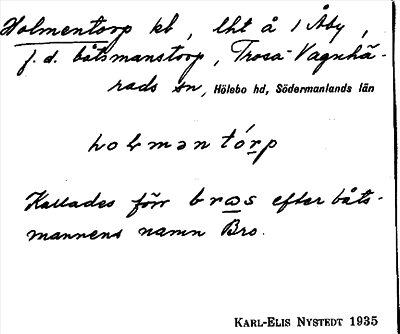 Holmentorp kb, lht å 1 Åby,
f.d. båtsmanstorp, Trosa-Vagnhä-
rads sn, Hölebo hd, Södermanlands län
holmən tórp
Kallades förr bros efter båts-
mannens namn Bro.
KARL-ELIS NYSTEDT 1935